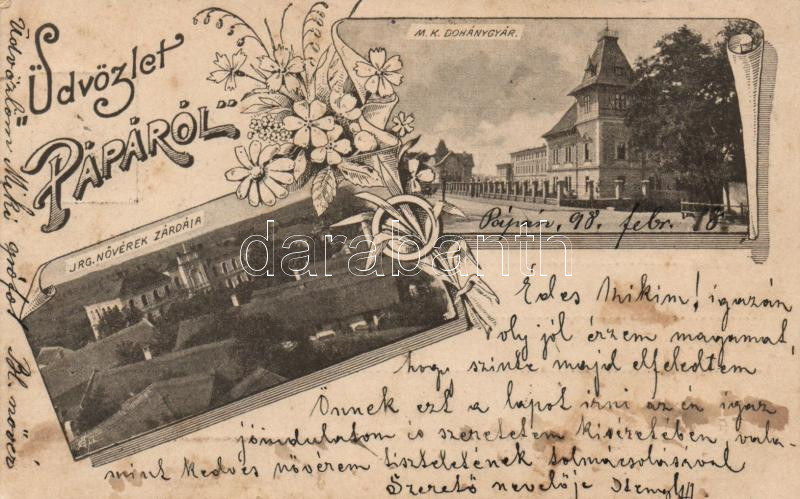 "Üdvözlet
PÁPÁRÓL"
M. K. DOHÁNYGYÁR.
JRG. NŐVÉREK ZÁRDÁJA
darabanth.com
Pápán, 98. febr. 18.
Édes Mikim! igazán
oly jól érzem magamat,
hogy szinte majd elfeledtem
Önnek ezt a lapot írni az én igaz
jóindulatom és szeretetem kíséretében, vala-
mint kedves nővérem tiszteletének tolmácsolásával
Szerető nevelője
Üdvözlom Miki